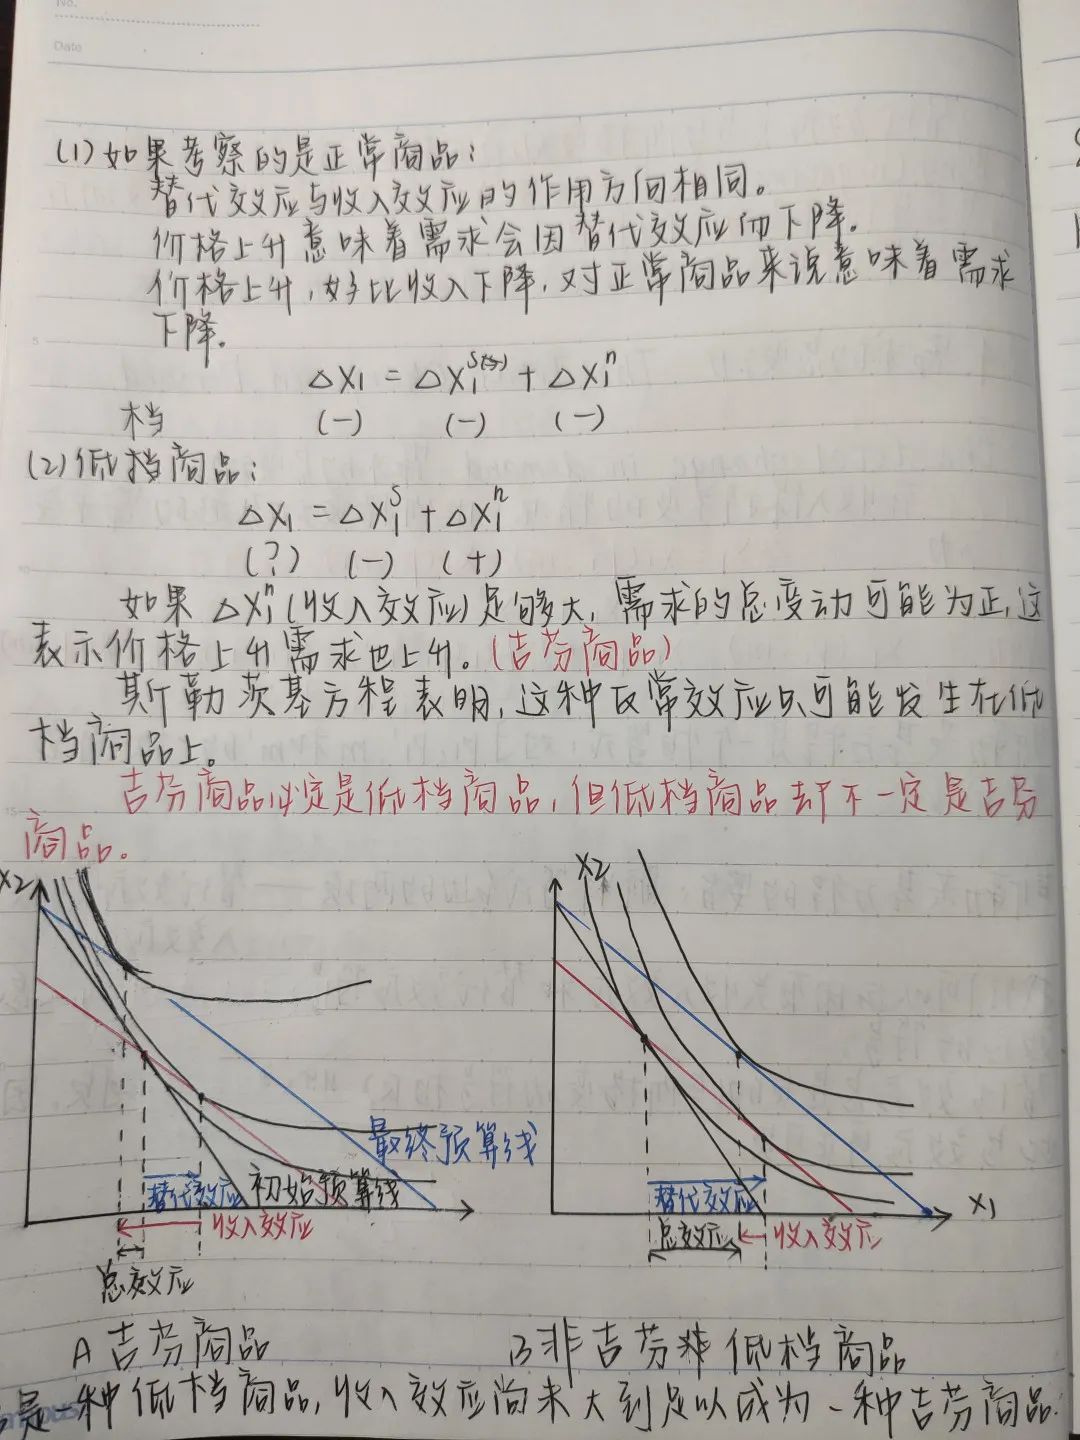 No.
Date
(1)如果考察的是正常商品：
替代效应与收入效应的作用方向相同。
价格上升意味着需求会因替代效应而下降。
价格上升，好比收入下降，对正常商品来说意味着需求
下降。
△X₁ = △X₁ˢ + △X₁ⁿ
档 (-) (-) (-)
(2)低档商品：
△X₁ = △X₁ˢ + △X₁ⁿ
(?) (-) (+)
如果 △X₁ⁿ(收入效应)足够大，需求的总变动可能为正，这
表示价格上升需求也上升。(吉芬商品)
斯勒茨基方程表明，这种反常效应只可能发生在低
档商品上。
吉芬商品必定是低档商品，但低档商品却不一定是吉芬
商品。
X2
最终预算线
替代效应 初始预算线
收入效应
总效应
A 吉芬商品
X2
X₁
替代效应
总效应 收入效应
B 非吉芬 低档商品
是一种低档商品，收入效应尚未大到足以成为一种吉芬商品.